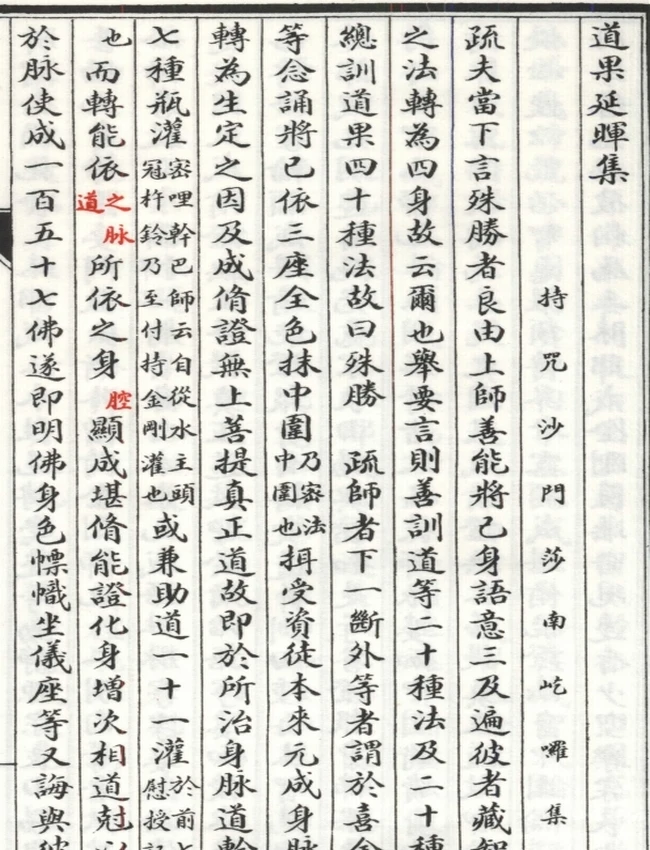 道果延暉集
持咒沙門莎南屹囉集
疏夫當下言殊勝者良由上師善能將已身語意三及遍彼者藏智
之法轉為四身故云爾也舉要言則善訓道等二十種法及二十種
總訓道果四十種法故曰殊勝 疏師者下一斷外等者謂於喜金
等念誦將已依三座全色抹中圍乃密法中圍也揖受資徒本來元成身脉
轉為生定之因及成脩證無上菩提真正道故即於所治身脉道幹
七種瓶灌密哩幹巴師云自從水主頭冠杵鈴乃至付持金剛灌也或兼助道一十一灌於前七慰授記
也而轉能依之脉道所依之身腔顯成堪脩能證化身增次相道尅以
於脉使成一百五十七佛遂即明佛身色幖幟坐儀座等又誨與彼